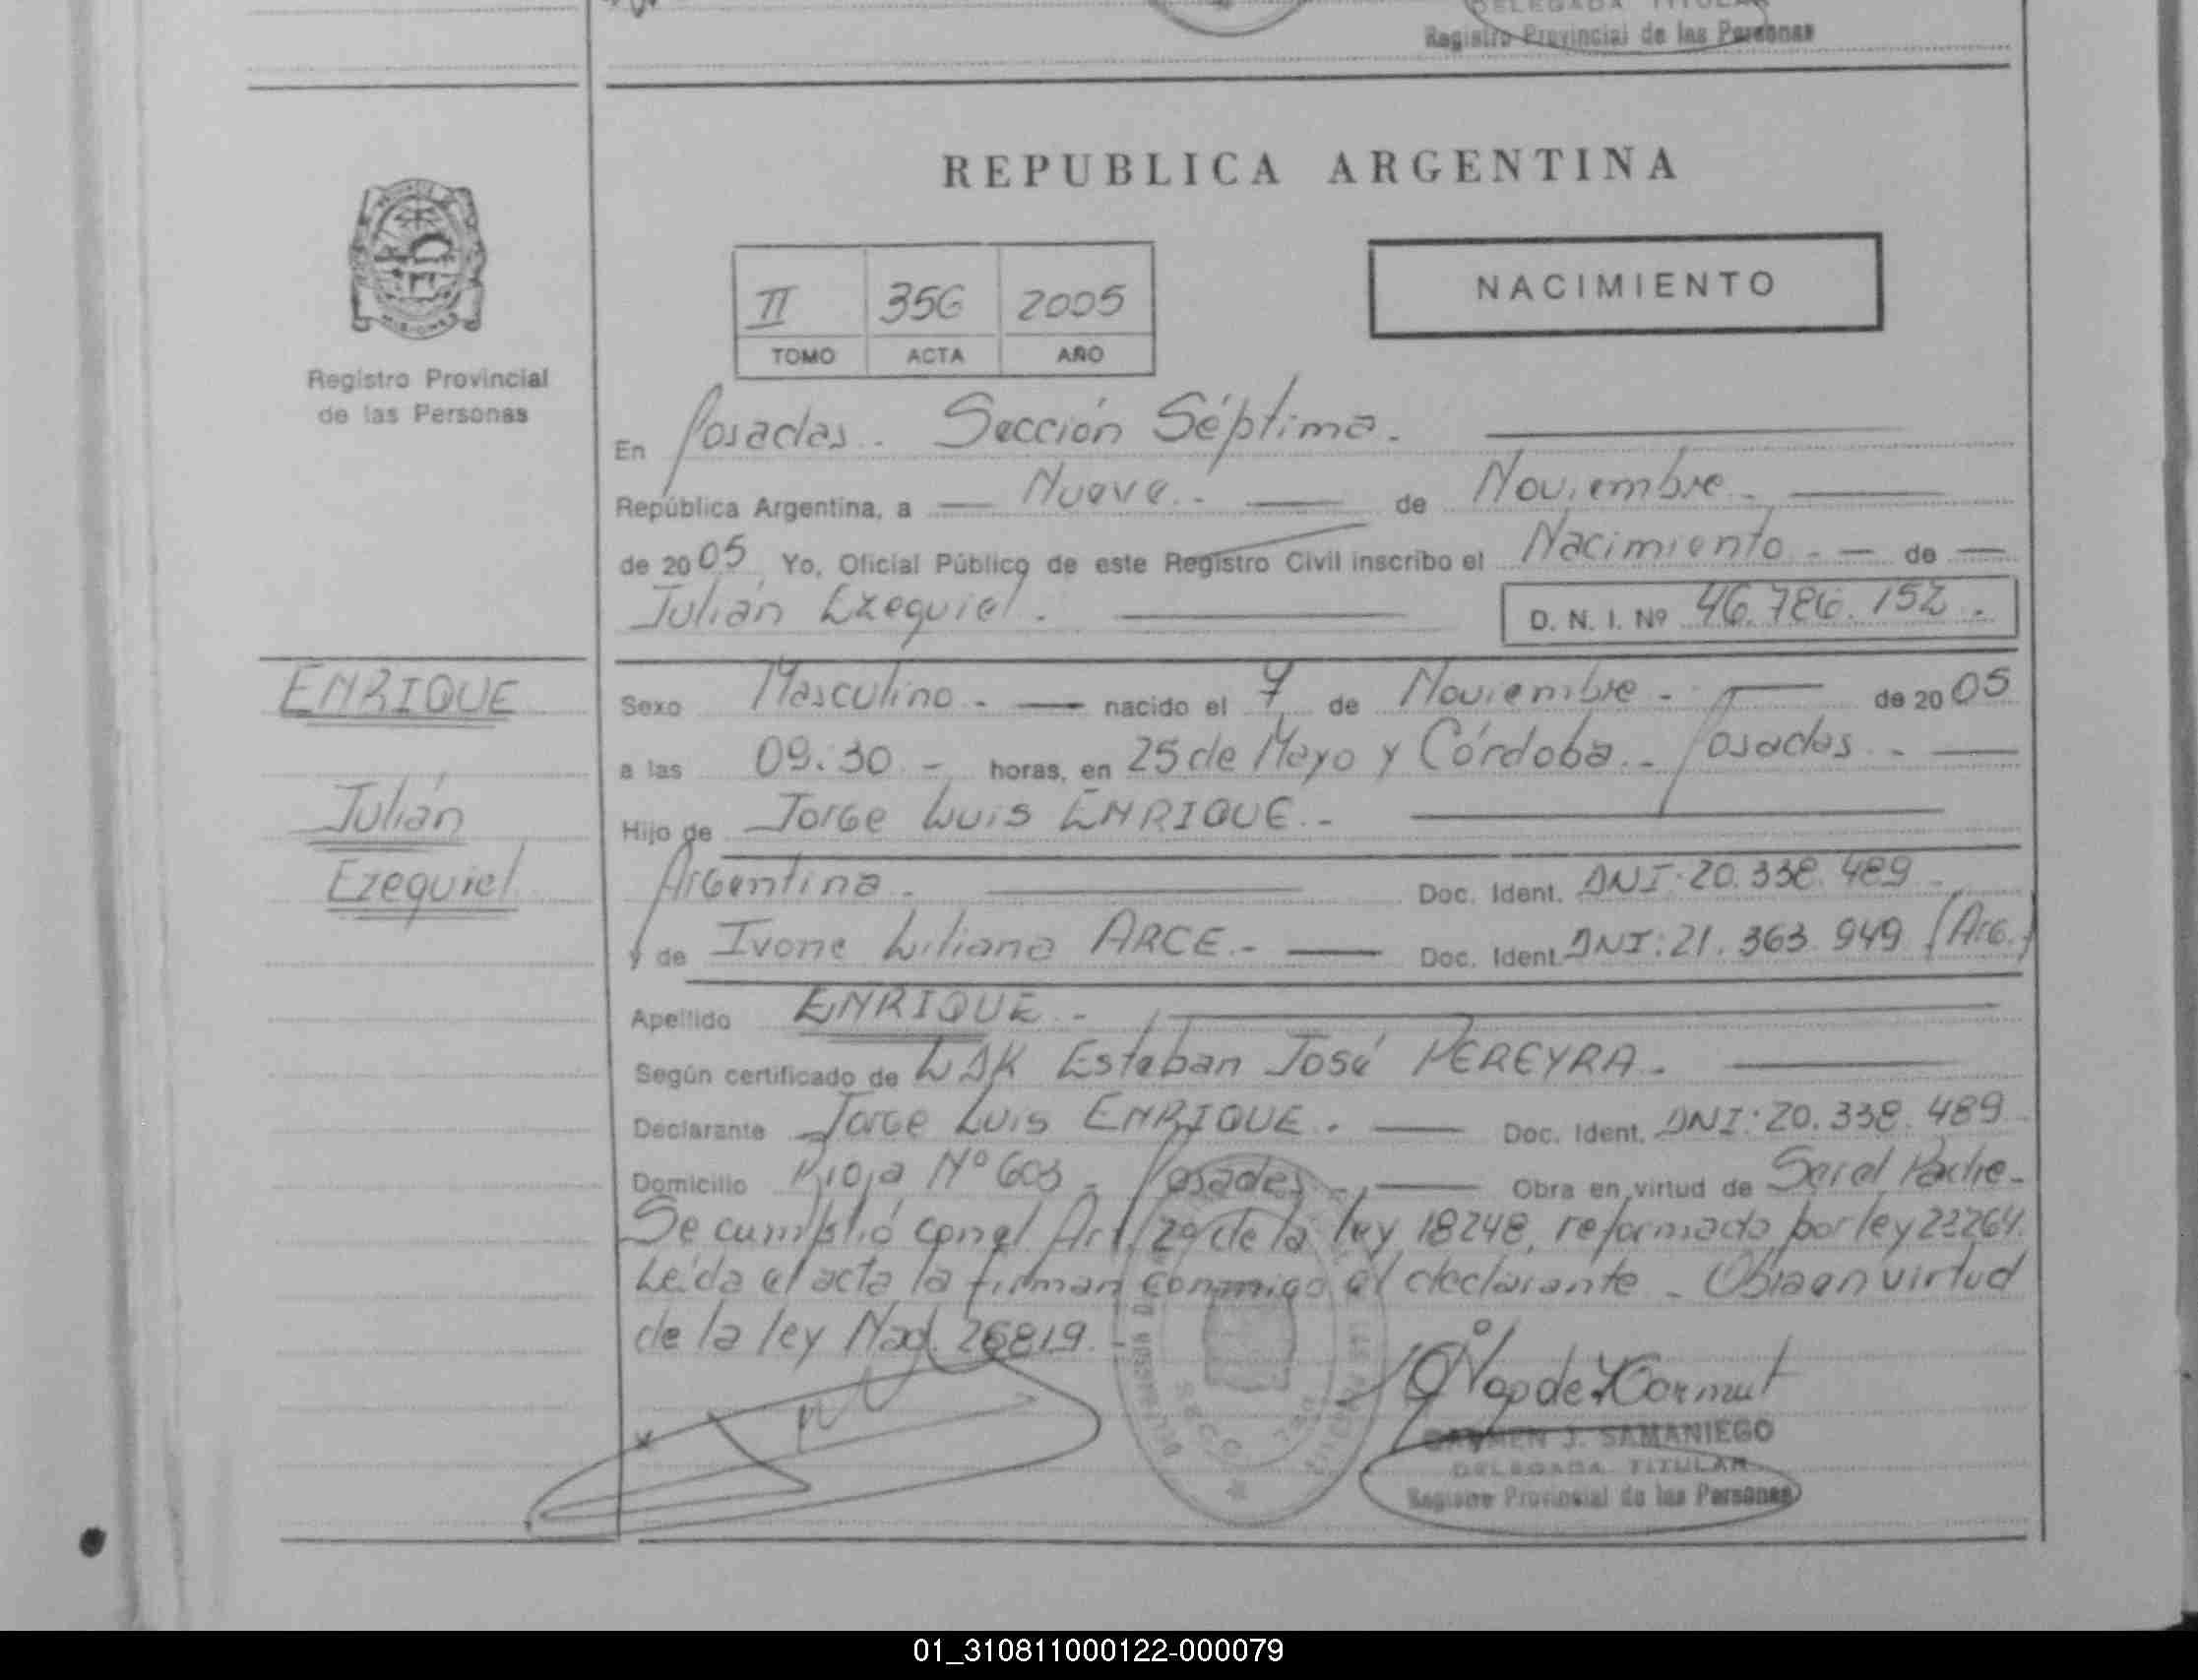 DELEGADA TITULAR
Registro Provincial de las Personas
REPUBLICA ARGENTINA
NACIMIENTO
II 356 2005
TOMO ACTA AÑO
MISIONES
Registro Provincial
de las Personas
En Posadas. Sección Séptima.
República Argentina, a Nueve.- de Noviembre.
de 2005, Yo, Oficial Público de este Registro Civil inscribo el Nacimiento.- de
Julián Ezequiel. D. N. I. Nº 46.786.152.
ENRIQUE
Julián
Ezequiel
Sexo Masculino.- nacido el 7 de Noviembre.- de 2005
a las 09:30.- horas, en 25 de Mayo y Córdoba.- Posadas.-
Hijo de Jorge Luis ENRIQUE.-
Argentina.- Doc. Ident. DNI: 20.338.489
y de Ivone Liliana ARCE.- Doc. Ident. DNI: 21.363.949 (Arg.)
Apellido ENRIQUE.-
Según certificado de Esteban José PEREYRA.-
Declarante Jorge Luis ENRIQUE. Doc. Ident. DNI: 20.338.489
Domicilio Rioja Nº 603.- Posadas.- Obra en virtud de Ser el Padre.-
Se cumplió con el Art. 2º de la ley 18248, reformado por ley 23264.
Leída el acta la firman conmigo el declarante. Obra en virtud
de la ley Nac. 26819.-
CARMEN J. SAMANIEGO
DELEGADA TITULAR
Registro Provincial de las Personas
01_310811000122-000079